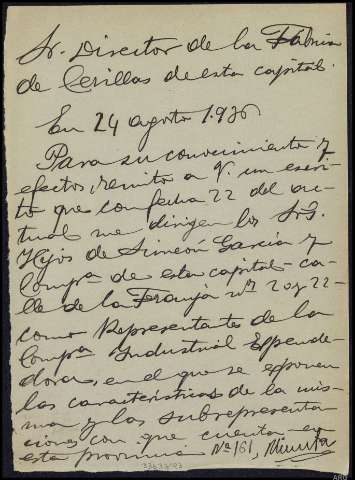 Sr. Director de la Fábrica
de Cerillas de esta capital.
En 24 agosto 1.936
Para su conocimiento y
efectos, remito a V. un escri-
to que con fecha 22 del ac-
tual me dirigen los Srs.
Hijos de Simeón García y
Compª de esta capital - ca-
lle de la Franja nº 20 y 22 -
como Representantes de la
Compª Industrial Expende-
dora, en el que se exponen
las características de la mis-
ma y las subrepresenta
ciones con que cuenta en
esta provincia Nº 161, Minuta